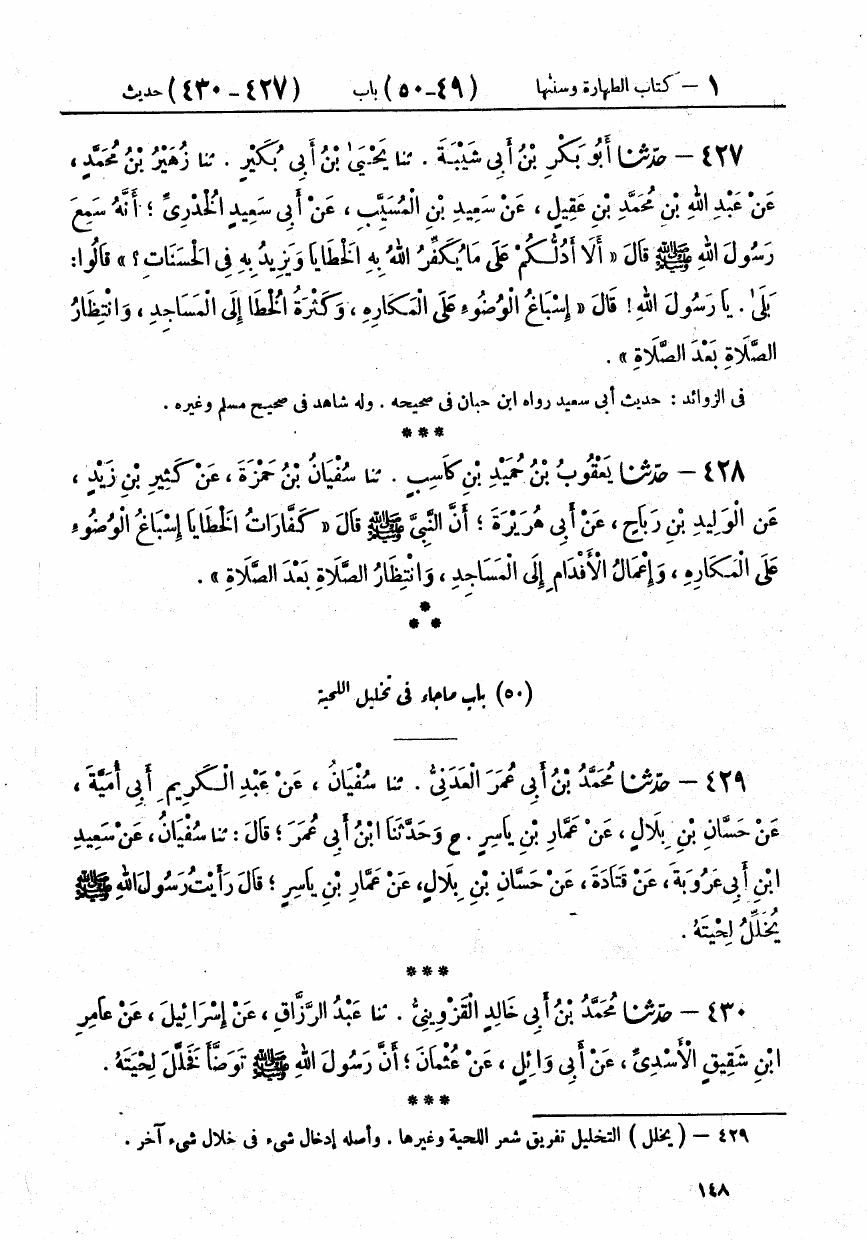 ١ – كتاب الطهارة وسننها (٤٩–٥٠) باب (٤٢٧ – ٤٣٠) حديث
٤٢٧ – حَدَّثَنَا أَبُو بَكْرِ بْنُ أَبِي شَيْبَةَ . ثنا يَحْيَىٰ بْنُ أَبِي بُكَيْرٍ . ثنا زُهَيْرُ بْنُ مُحَمَّدٍ ،
عَنْ عَبْدِ اللهِ بْنِ مُحَمَّدِ بْنِ عَقِيلٍ ، عَنْ سَعِيدِ بْنِ الْمُسَيَّبِ ، عَنْ أَبِي سَعِيدٍ الْخُدْرِيِّ ؛ أَنَّهُ سَمِعَ
رَسُولَ اللهِ ﷺ قَالَ « أَلَا أَدُلُّكُمْ عَلَى مَا يُكَفِّرُ اللهُ بِهِ الْخَطَايَا وَيَزِيدُ بِهِ فِي الْحَسَنَاتِ ؟ » قَالُوا:
بَلَىٰ . يَا رَسُولَ اللهِ ! قَالَ « إِسْبَاغُ الْوُضُوءِ عَلَى الْمَكَارِهِ ، وَكَثْرَةُ الْخُطَا إِلَى الْمَسَاجِدِ ، وَانْتِظَارُ
الصَّلَاةِ بَعْدَ الصَّلَاةِ » .
فى الزوائد : حديث أبى سعيد رواه ابن حبان فى صحيحه . وله شاهد فى صحيح مسلم وغيره .
***
٤٢٨ – حَدَّثَنَا يَعْقُوبُ بْنُ حُمَيْدِ بْنِ كَاسِبٍ . ثنا سُفْيَانُ بْنُ حَمْزَةَ ، عَنْ كَثِيرِ بْنِ زَيْدٍ ،
عَنِ الْوَلِيدِ بْنِ رَبَاحٍ ، عَنْ أَبِي هُرَيْرَةَ ؛ أَنَّ النَّبِيَّ ﷺ قَالَ « كَفَّارَاتُ الْخَطَايَا إِسْبَاغُ الْوُضُوءِ
عَلَى الْمَكَارِهِ ، وَإِعْمَالُ الْأَقْدَامِ إِلَى الْمَسَاجِدِ ، وَانْتِظَارُ الصَّلَاةِ بَعْدَ الصَّلَاةِ » .
*
* *
(٥٠) باب ما جاء فى تخليل اللحية
٤٢٩ – حَدَّثَنَا مُحَمَّدُ بْنُ أَبِي عُمَرَ الْعَدَنِيُّ . ثنا سُفْيَانُ ، عَنْ عَبْدِ الْكَرِيمِ أَبِي أُمَيَّةَ ،
عَنْ حَسَّانِ بْنِ بِلَالٍ ، عَنْ عَمَّارِ بْنِ يَاسِرٍ . ح وَحَدَّثَنَا ابْنُ أَبِي عُمَرَ ؛ قَالَ : ثنا سُفْيَانُ ، عَنْ سَعِيدِ
ابْنِ أَبِي عَرُوبَةَ ، عَنْ قَتَادَةَ ، عَنْ حَسَّانِ بْنِ بِلَالٍ، عَنْ عَمَّارِ بْنِ يَاسِرٍ ؛ قَالَ رَأَيْتُ رَسُولَ اللهِ ﷺ
يُخَلِّلُ لِحْيَتَهُ .
***
٤٣٠ – حَدَّثَنَا مُحَمَّدُ بْنُ أَبِي خَالِدٍ الْقَزْوِينِيُّ . ثنا عَبْدُ الرَّزَّاقِ ، عَنْ إِسْرَائِيلَ ، عَنْ عَامِرِ
ابْنِ شَقِيقٍ الْأَسْدِيِّ ، عَنْ أَبِي وَائِلٍ ، عَنْ عُثْمَانَ ؛ أَنَّ رَسُولَ اللهِ ﷺ تَوَضَّأَ فَخَلَّلَ لِحْيَتَهُ .
***
٤٢٩ – ( يخلل ) التخليل تفريق شعر اللحية وغيرها . وأصله إدخال شىء فى خلال شىء آخر .
١٤٨